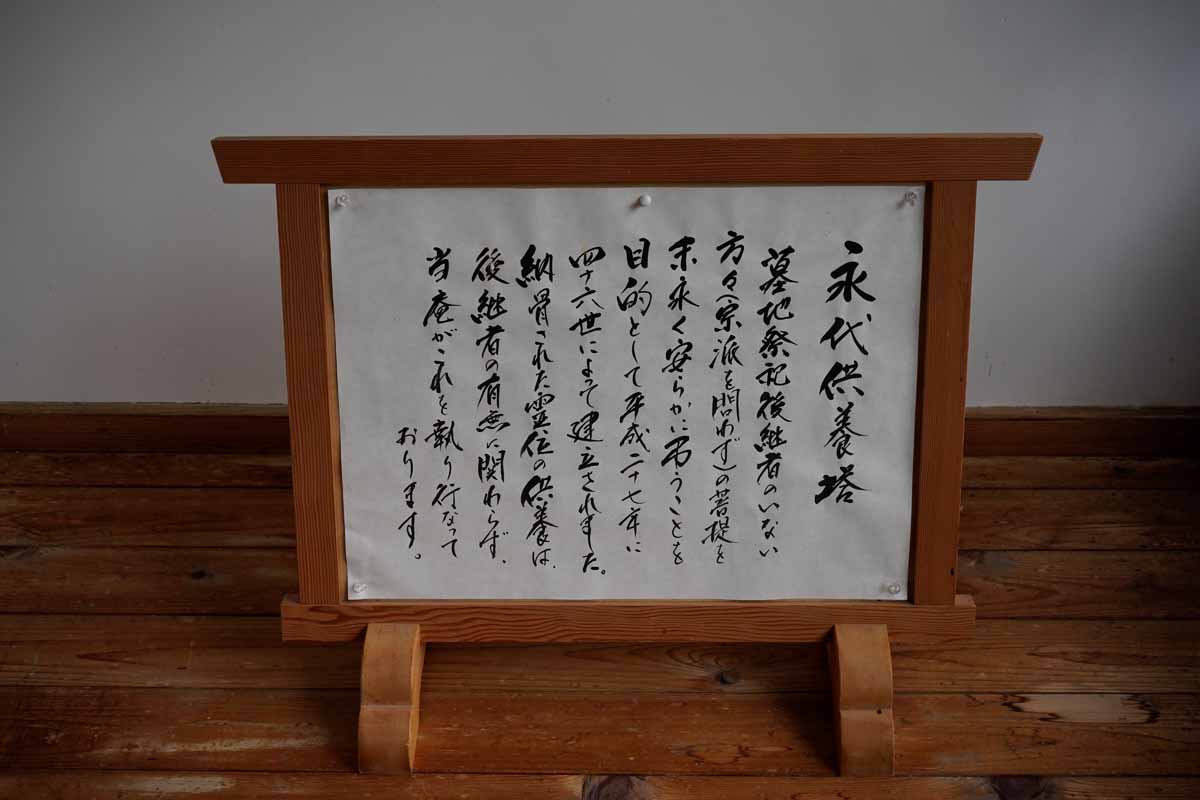 永代供養塔
墓地祭祀後継者のいない
方々(宗派を問わず)の菩提を
末永く安らかに弔うことを
目的として平成二十七年に
四十六世によって建立されました。
納骨された霊位の供養は、
後継者の有無に関わらず、
当庵がこれを執り行なって
おります。